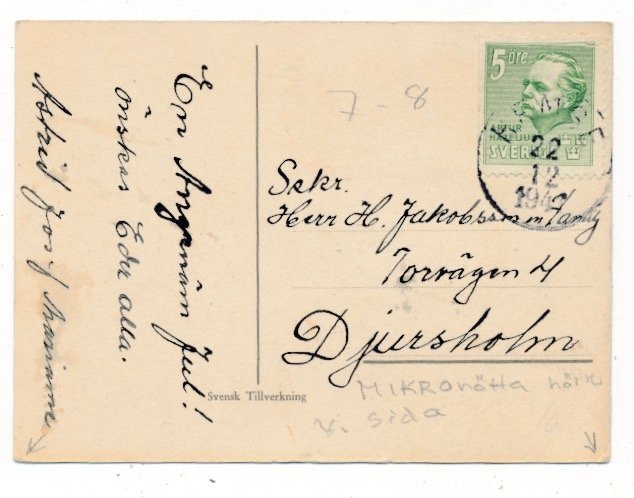 En Angenäm Jul!
önskas Eder alla.
Astrid Jos
7-8
5 öre
ARTUR
HAZELIUS
SVERIGE
22
12
194
Sekr.
Herr H. Jakobsson m Familj
Torvägen 4
Djursholm
Svensk Tillverkning
MIKRO nötta hörn
v. sida